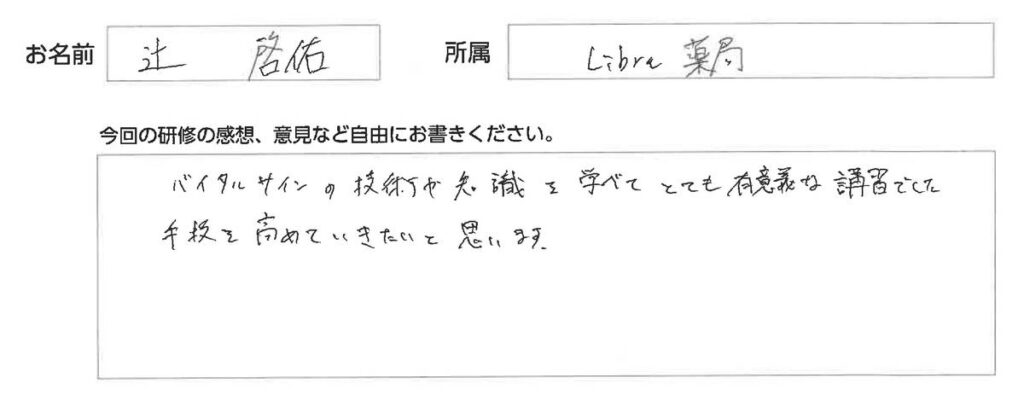 お名前 辻 啓佑 所属 Libra 薬局
今回の研修の感想、意見など自由にお書きください。
バイタルサインの技術や知識を学べてとても有意義な講習でした
手技を高めていきたいと思います.